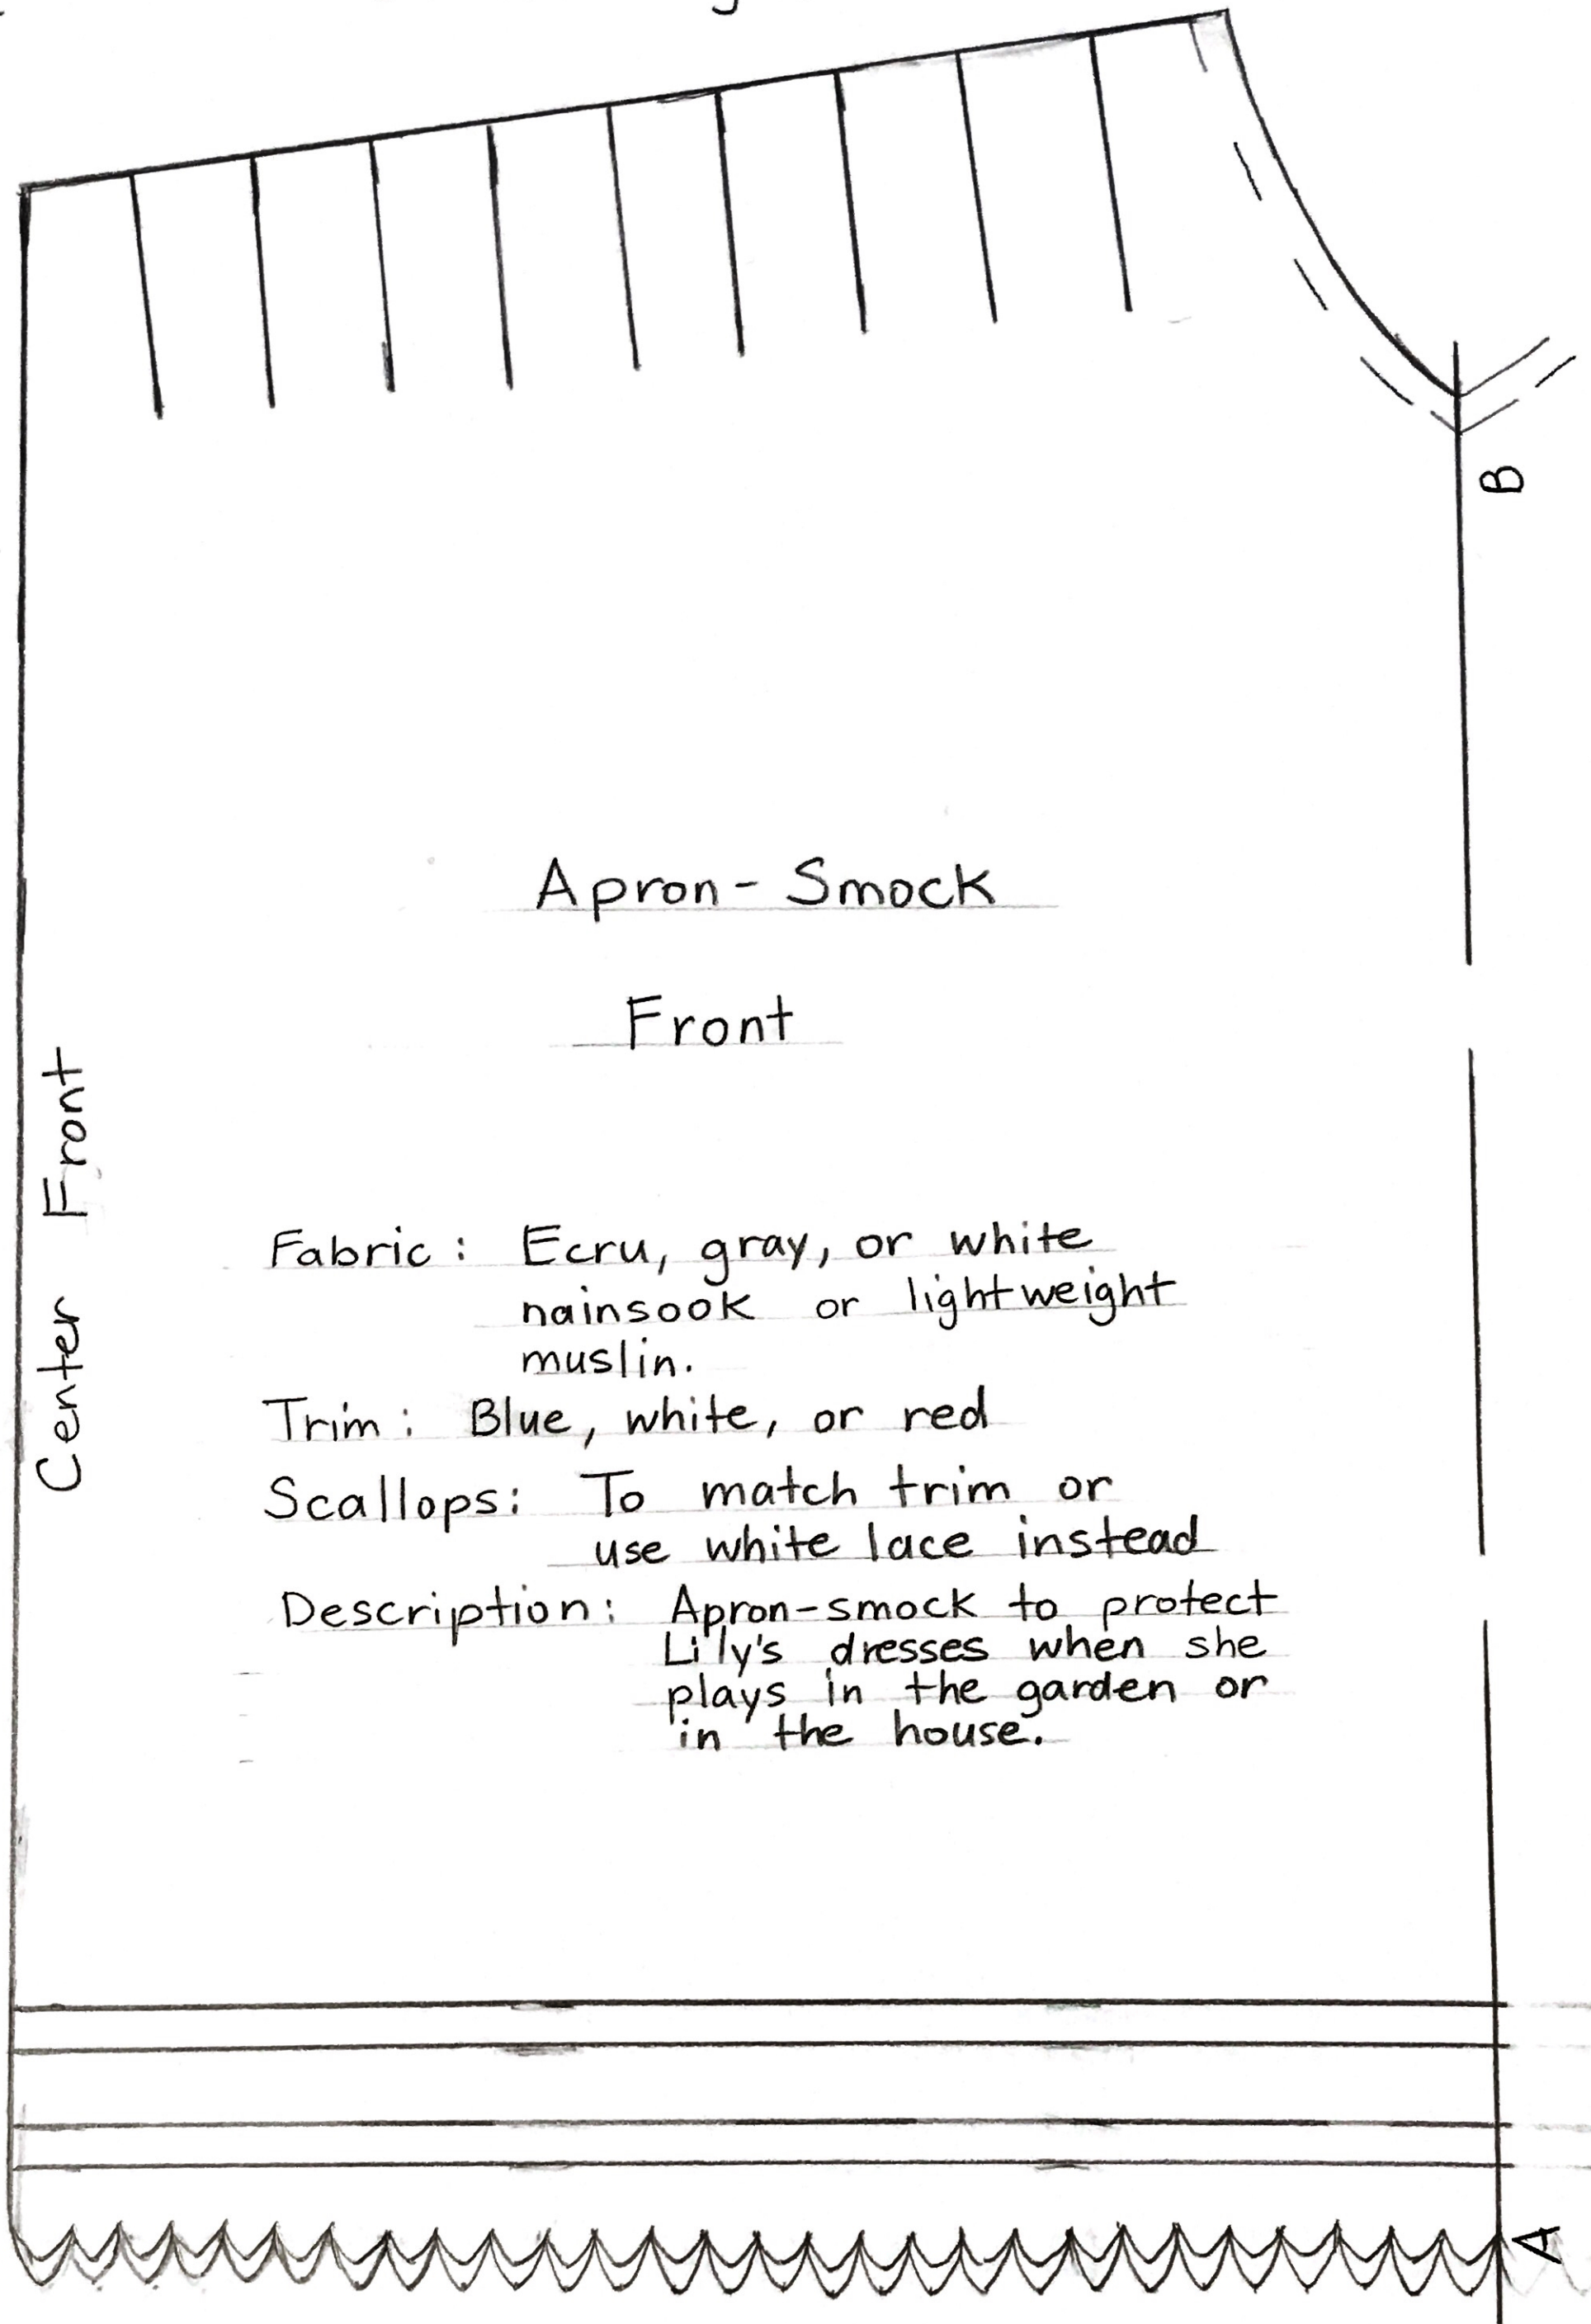 B
Apron-Smock
Front
Center Front
Fabric: Ecru, gray, or white
nainsook or lightweight
muslin.
Trim: Blue, white, or red
Scallops: To match trim or
use white lace instead
Description: Apron-smock to protect
Lily's dresses when she
plays in the garden or
in the house.
A